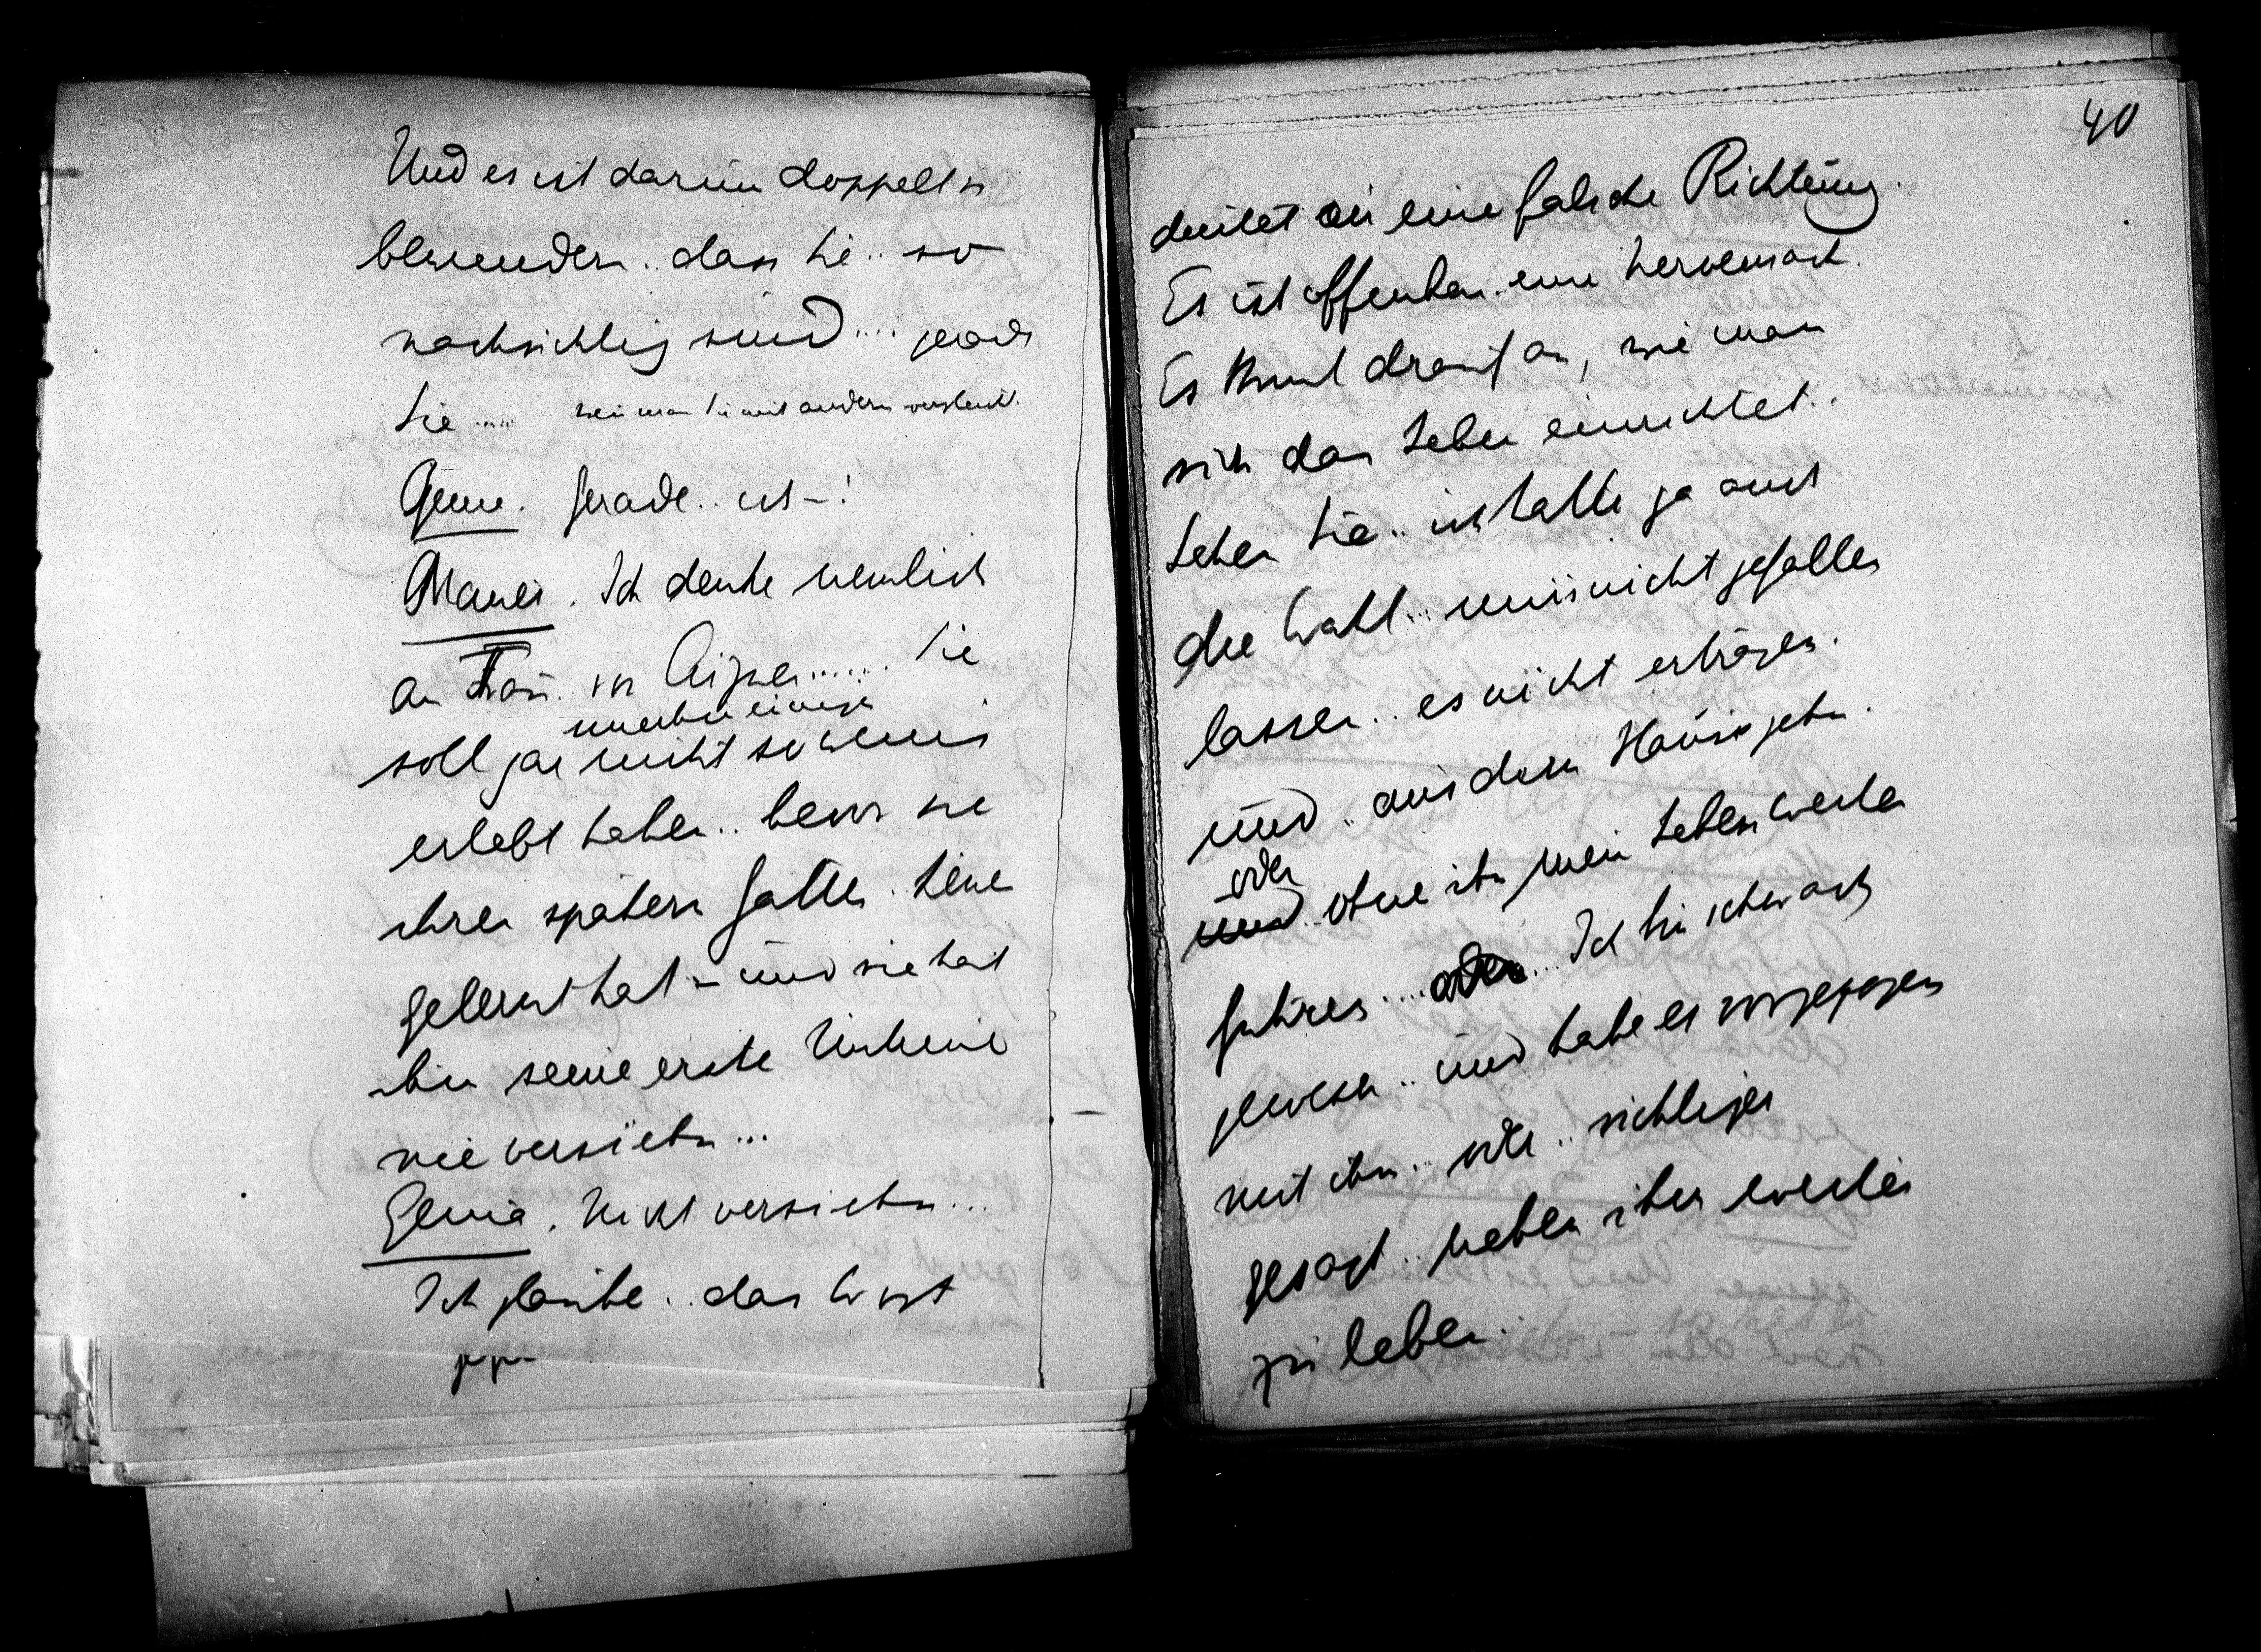 Und es ist darum doppelt zu
bewundern.. dass Sie.. so
nachsichtig sind.... gerade
Sie..... wenn man Sie mit andern vergleicht.
Genia. Gerade.. ich –!
Mauer. Ich denke nemlich
an Frau von Aigner...... Sie
unerhebliches
soll gar nicht so wenig
erlebt haben.. bevor sie
ihren spätern Gatten kennen
gelernt hat – und sie hat
ihm seine erste Untreue
nie verziehn...
Genia. Nicht verziehn...
Ich glaube.. das Wort
40
deutet in eine falsche Richtung.
Es ist offenbar eine Nervensach.
Es kommt drauf an, wie man
sich das Leben einrichtet..
Sehen Sie.. ich hatte ja auch
die Wahl... mirs nicht gefallen
lassen.. es nicht ertragen.
und.. aus dem Hause gehn.
oder
und ohne ihn mein Leben weiter
führen.... oder... Ich bin schwach
gewesen.. und habe es vorgezogen
mit ihm.. oder.. richtiger
gesagt.. neben ihm weiter
zu leben.